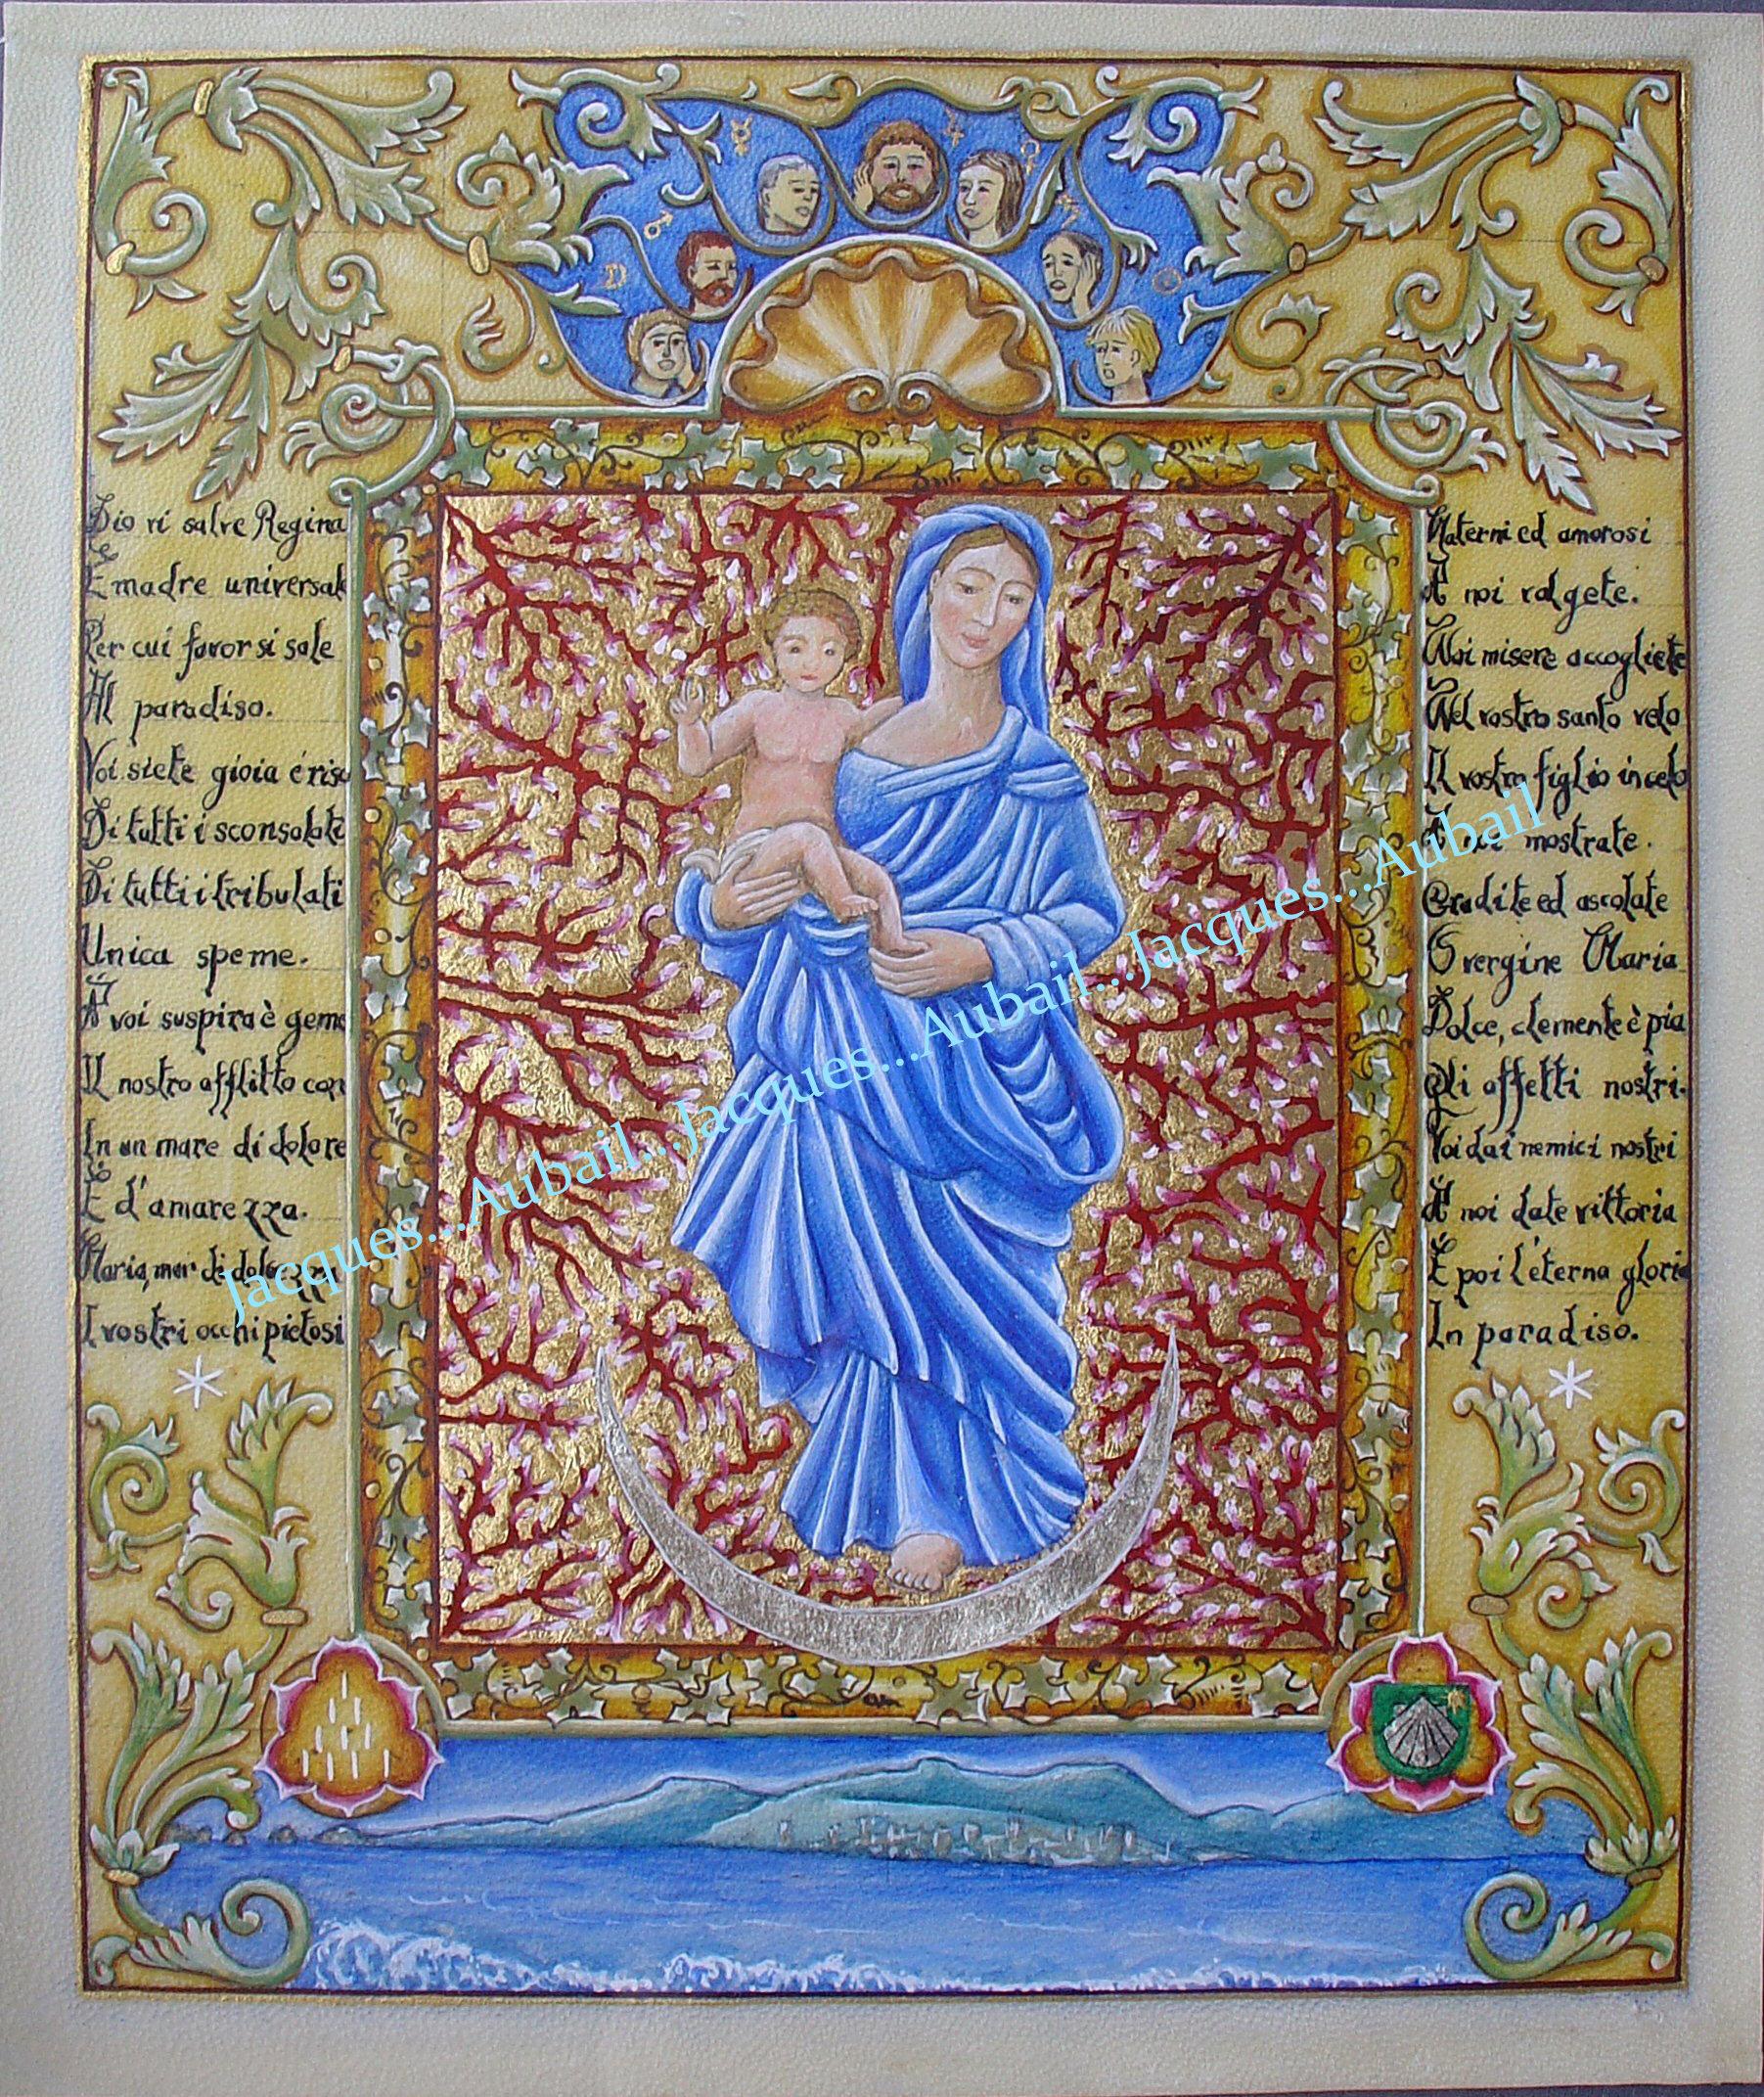 Dio vi salve Regina
È madre universale
Per cui favor si sale
Al paradiso.
Voi siete gioia é riso
Di tutti i sconsolati
Di tutti i tribulati
Unica speme.
A voi suspira è geme
Il nostro afflitto cor
In un mare di dolore
È d'amarezza.
Maria, mar di dolcezza
I vostri occhi pietosi
Materni ed amorosi
A noi volgete.
Noi misere accogliete
Nel vostro santo velo
Il vostro figlio in celo
A noi mostrate.
Gradite ed ascolate
O vergine Maria
Dolce, clemente è pia
Gli affetti nostri.
Voi dai nemici nostri
A noi date vittoria
È poi l'éterna gloria
In paradiso.
Jacques...Aubail...Jacques...Aubail...Jacques...Aubail